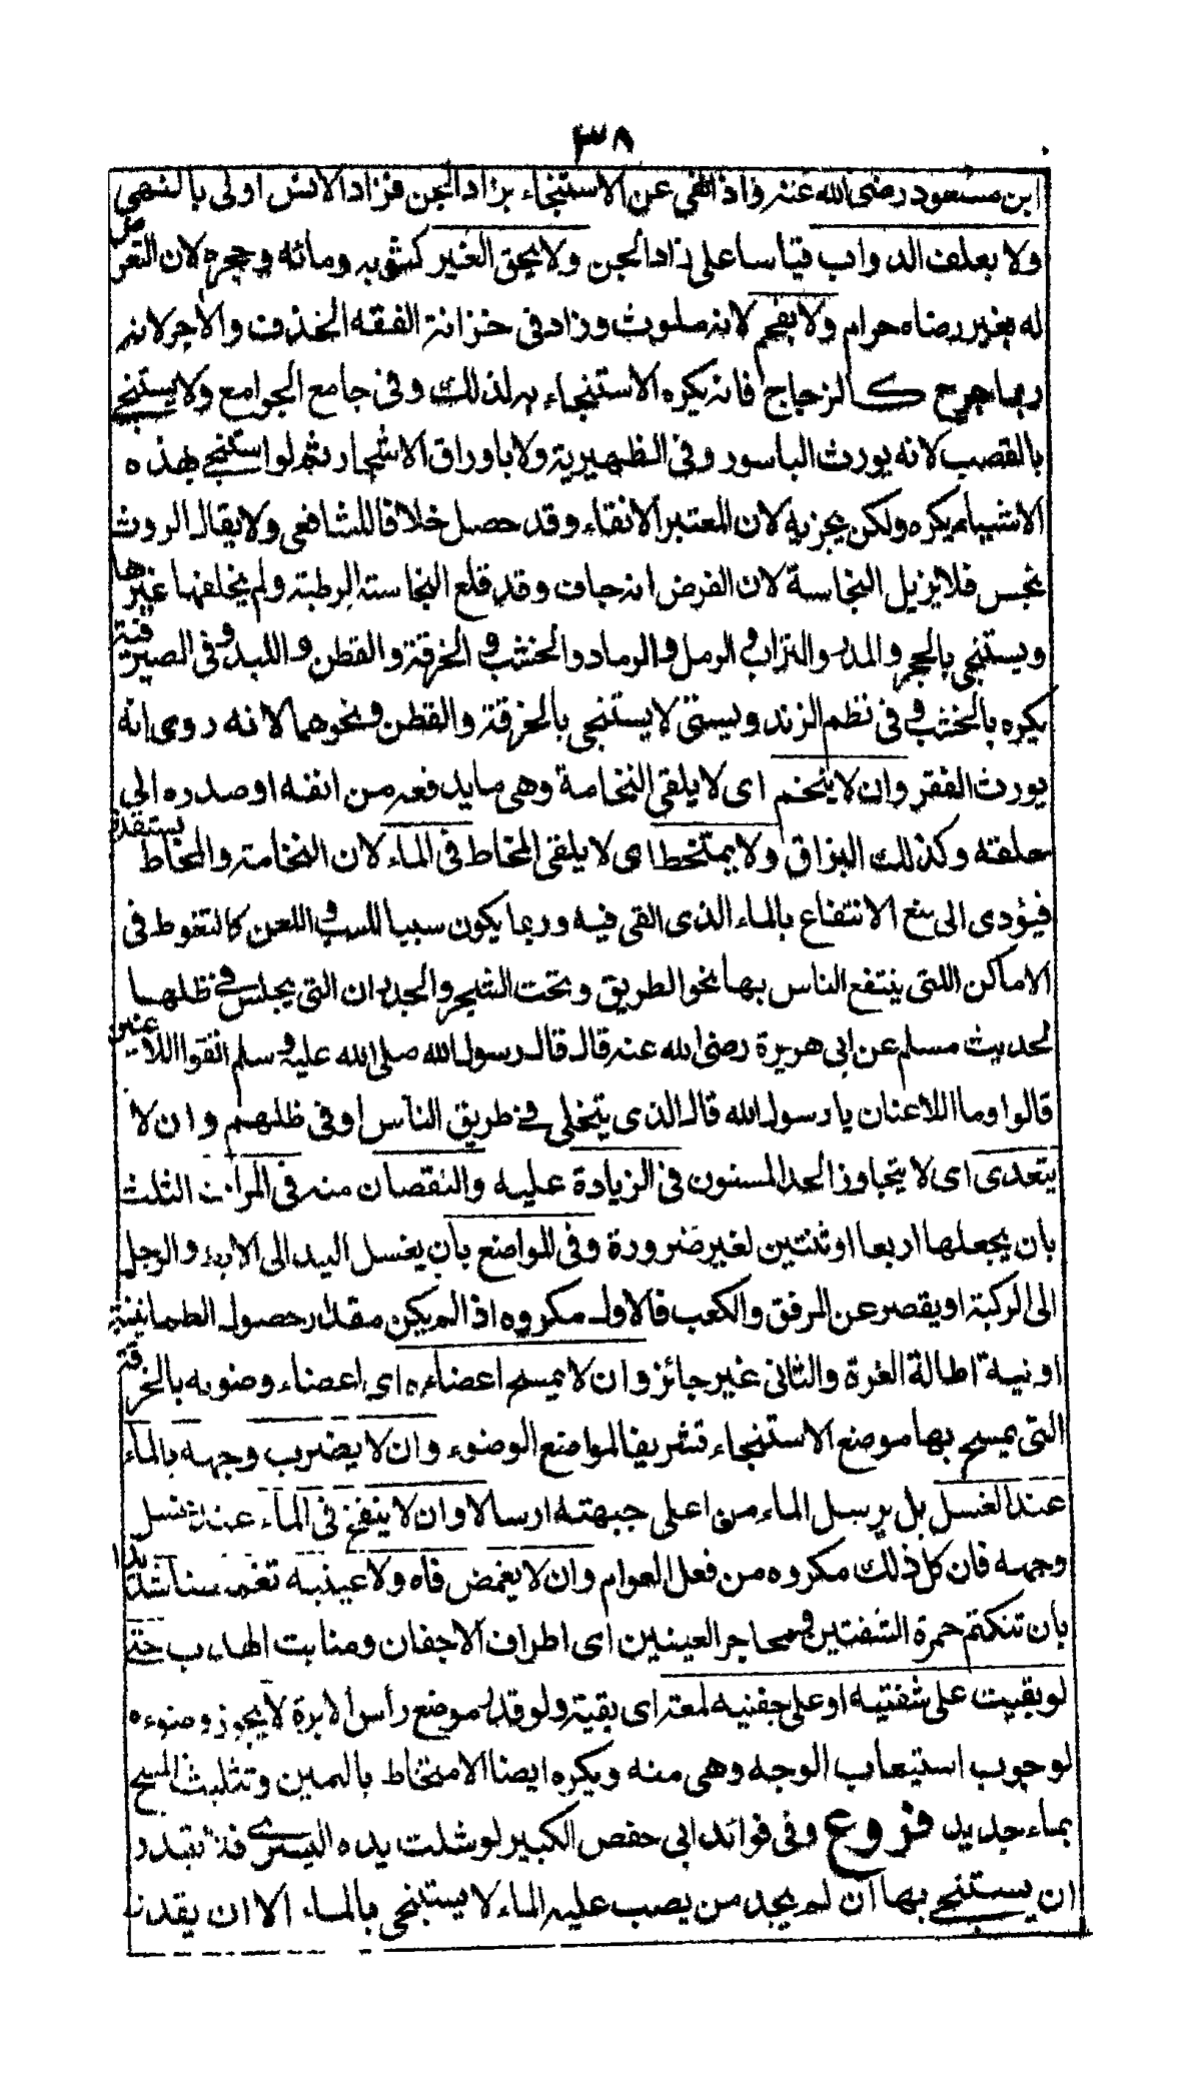 ٣٨
ابن مسعود رضى الله عنه واذا نهى عن الاستنجاء بزاد الجن فزاد الانس اولى بالنهى
ولا بعلف الدواب قياسا على زاد الجن ولا بحق الغير كثوبه ومائه وحجره لان التعرض
له بغير رضاه حرام ولا بفحم لانه ملوث وزاد فى خزانة الفقه الخذف والآجر لانه
ربما جرح كالزجاج فانه يكره الاستنجاء به لذلك وفى جامع الجوامع ولا يستنجى
بالقصب لانه يورث الباسور وفى الظهيرية ولا باوراق الاشجار ثم لو استنجى بهذه
الاشياء يكره ولكن يجزيه لان المعتبر الانقاء وقد حصل خلافا للشافعى ولا يقال الروث
نجس فلا يزيل النجاسة لان الفرض انه جاف وقد قلع النجاسة الرطبة ولم يخلفها غيرها
ويستنجى بالحجر والمدر والتراب والرمل والرماد والخشب والخرقة والقطن واللبد وفى الصيرفية
يكره بالخشب وفى نظم الزندويستى لا يستنجى بالخرقة والقطن ونحوهما لانه روى انه
يورث الفقر وان لا يتنخم اى لا يلقى النخامة وهى ما يدفعه من انفه او صدره الى
حلقه وكذلك البزاق ولا يمتخط اى لا يلقى المخاط فى الماء لان النخامة والمخاط يستقذر
فيؤدى الى منع الانتفاع بالماء الذى القى فيه وربما يكون سببا للسب واللعن كالتغوط فى
الاماكن اللتى ينتفع الناس بها نحو الطريق وتحت الشجر والجدران التى يجلس فى ظلها
لحديث مسلم عن ابى هريرة رضى الله عنه قال قال رسول الله صلى الله عليه وسلم اتقوا اللاعنين
قالوا وما اللاعنان يا رسول الله قال الذى يتخلى فى طريق الناس او فى ظلهم وان لا
يتعدى اى لا يتجاوز الحد المسنون فى الزيادة عليه والنقصان منه فى المرات الثلث
بان يجعلها اربعا او ثنتين لغير ضرورة وفى المواضع بان يغسل اليد الى الابط والرجل
الى الركبة او يقصر عن المرفق والكعب فالاول مكروه اذا لم يكن مقدار حصول الطمانينة
او نية اطالة الغرة والثانى غير جائز وان لا يمسح اعضاءه اى اعضاء وضوبه بالخرقة
التى يمسح بها موضع الاستنجاء تشريفا لمواضع الوضوء وان لا يضرب وجهه بالماء
عند الغسل بل يرسل الماء من اعلى جبهته ارسالا وان لا ينفخ فى الماء عند غسل
وجهه فان كل ذلك مكروه من فعل العوام وان لا يغمض فاه ولا عينيه تغميضا شديدا
بان تنكتم حمرة الشفتين ومحاجر العينين اى اطراف الاجفان ومنابت الهدب حتى
لو بقيت على شفتيه او على جفنيه لمعة اى بقية ولو قدر موضع رأس الابرة لا يجوز وضوءه
لوجوب استيعاب الوجه وهى منه ويكره ايضا الامتخاط باليمين وتثليث المسح
بماء جديد فروع وفى فوائد ابى حفص الكبير لو شلت يده اليسرى فلا يقدر
ان يستنجى بها ان لم يجد من يصب عليه الماء لا يستنجى بالماء الا ان يقدر